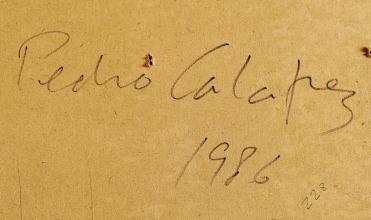 Pedro Calapez
1986
228